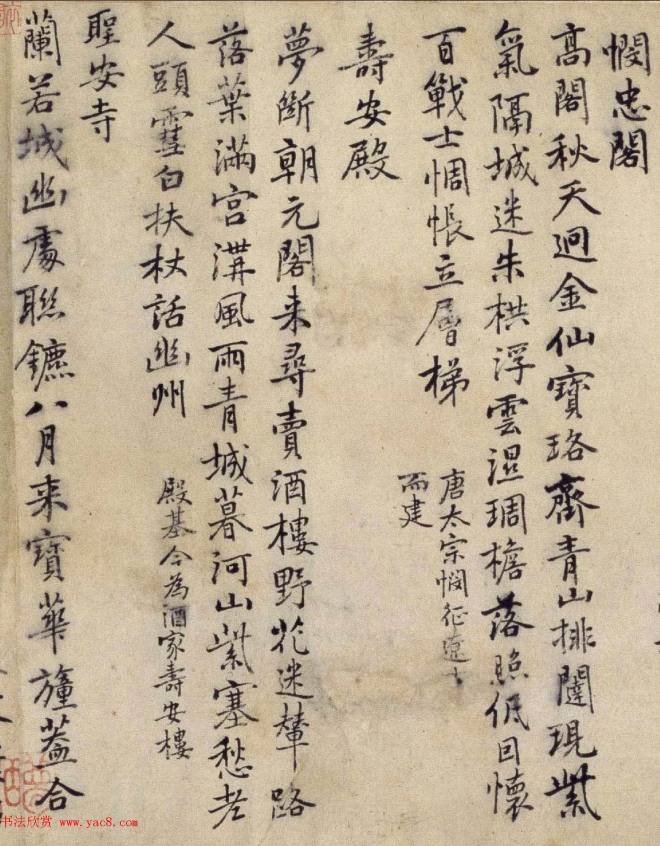 憫忠閣
髙閣秋天迥金仙寶珞齊青山排闥現紫
氣隔城迷朱栱浮雲濕琱檐落照低囙懷
百戰士惆悵立層梯
唐太宗憫征遼士
而建
壽安殿
夢斷朝元閣来尋賣酒樓野花迷輦路
落葉滿宮溝風雨青城暮河山紫塞愁老
人頭雪白扶杖話幽州
殿基今為酒家壽安樓
聖安寺
蘭若城幽處聯鑣八月来寶華幢葢合
书法欣赏 www.yac8.com